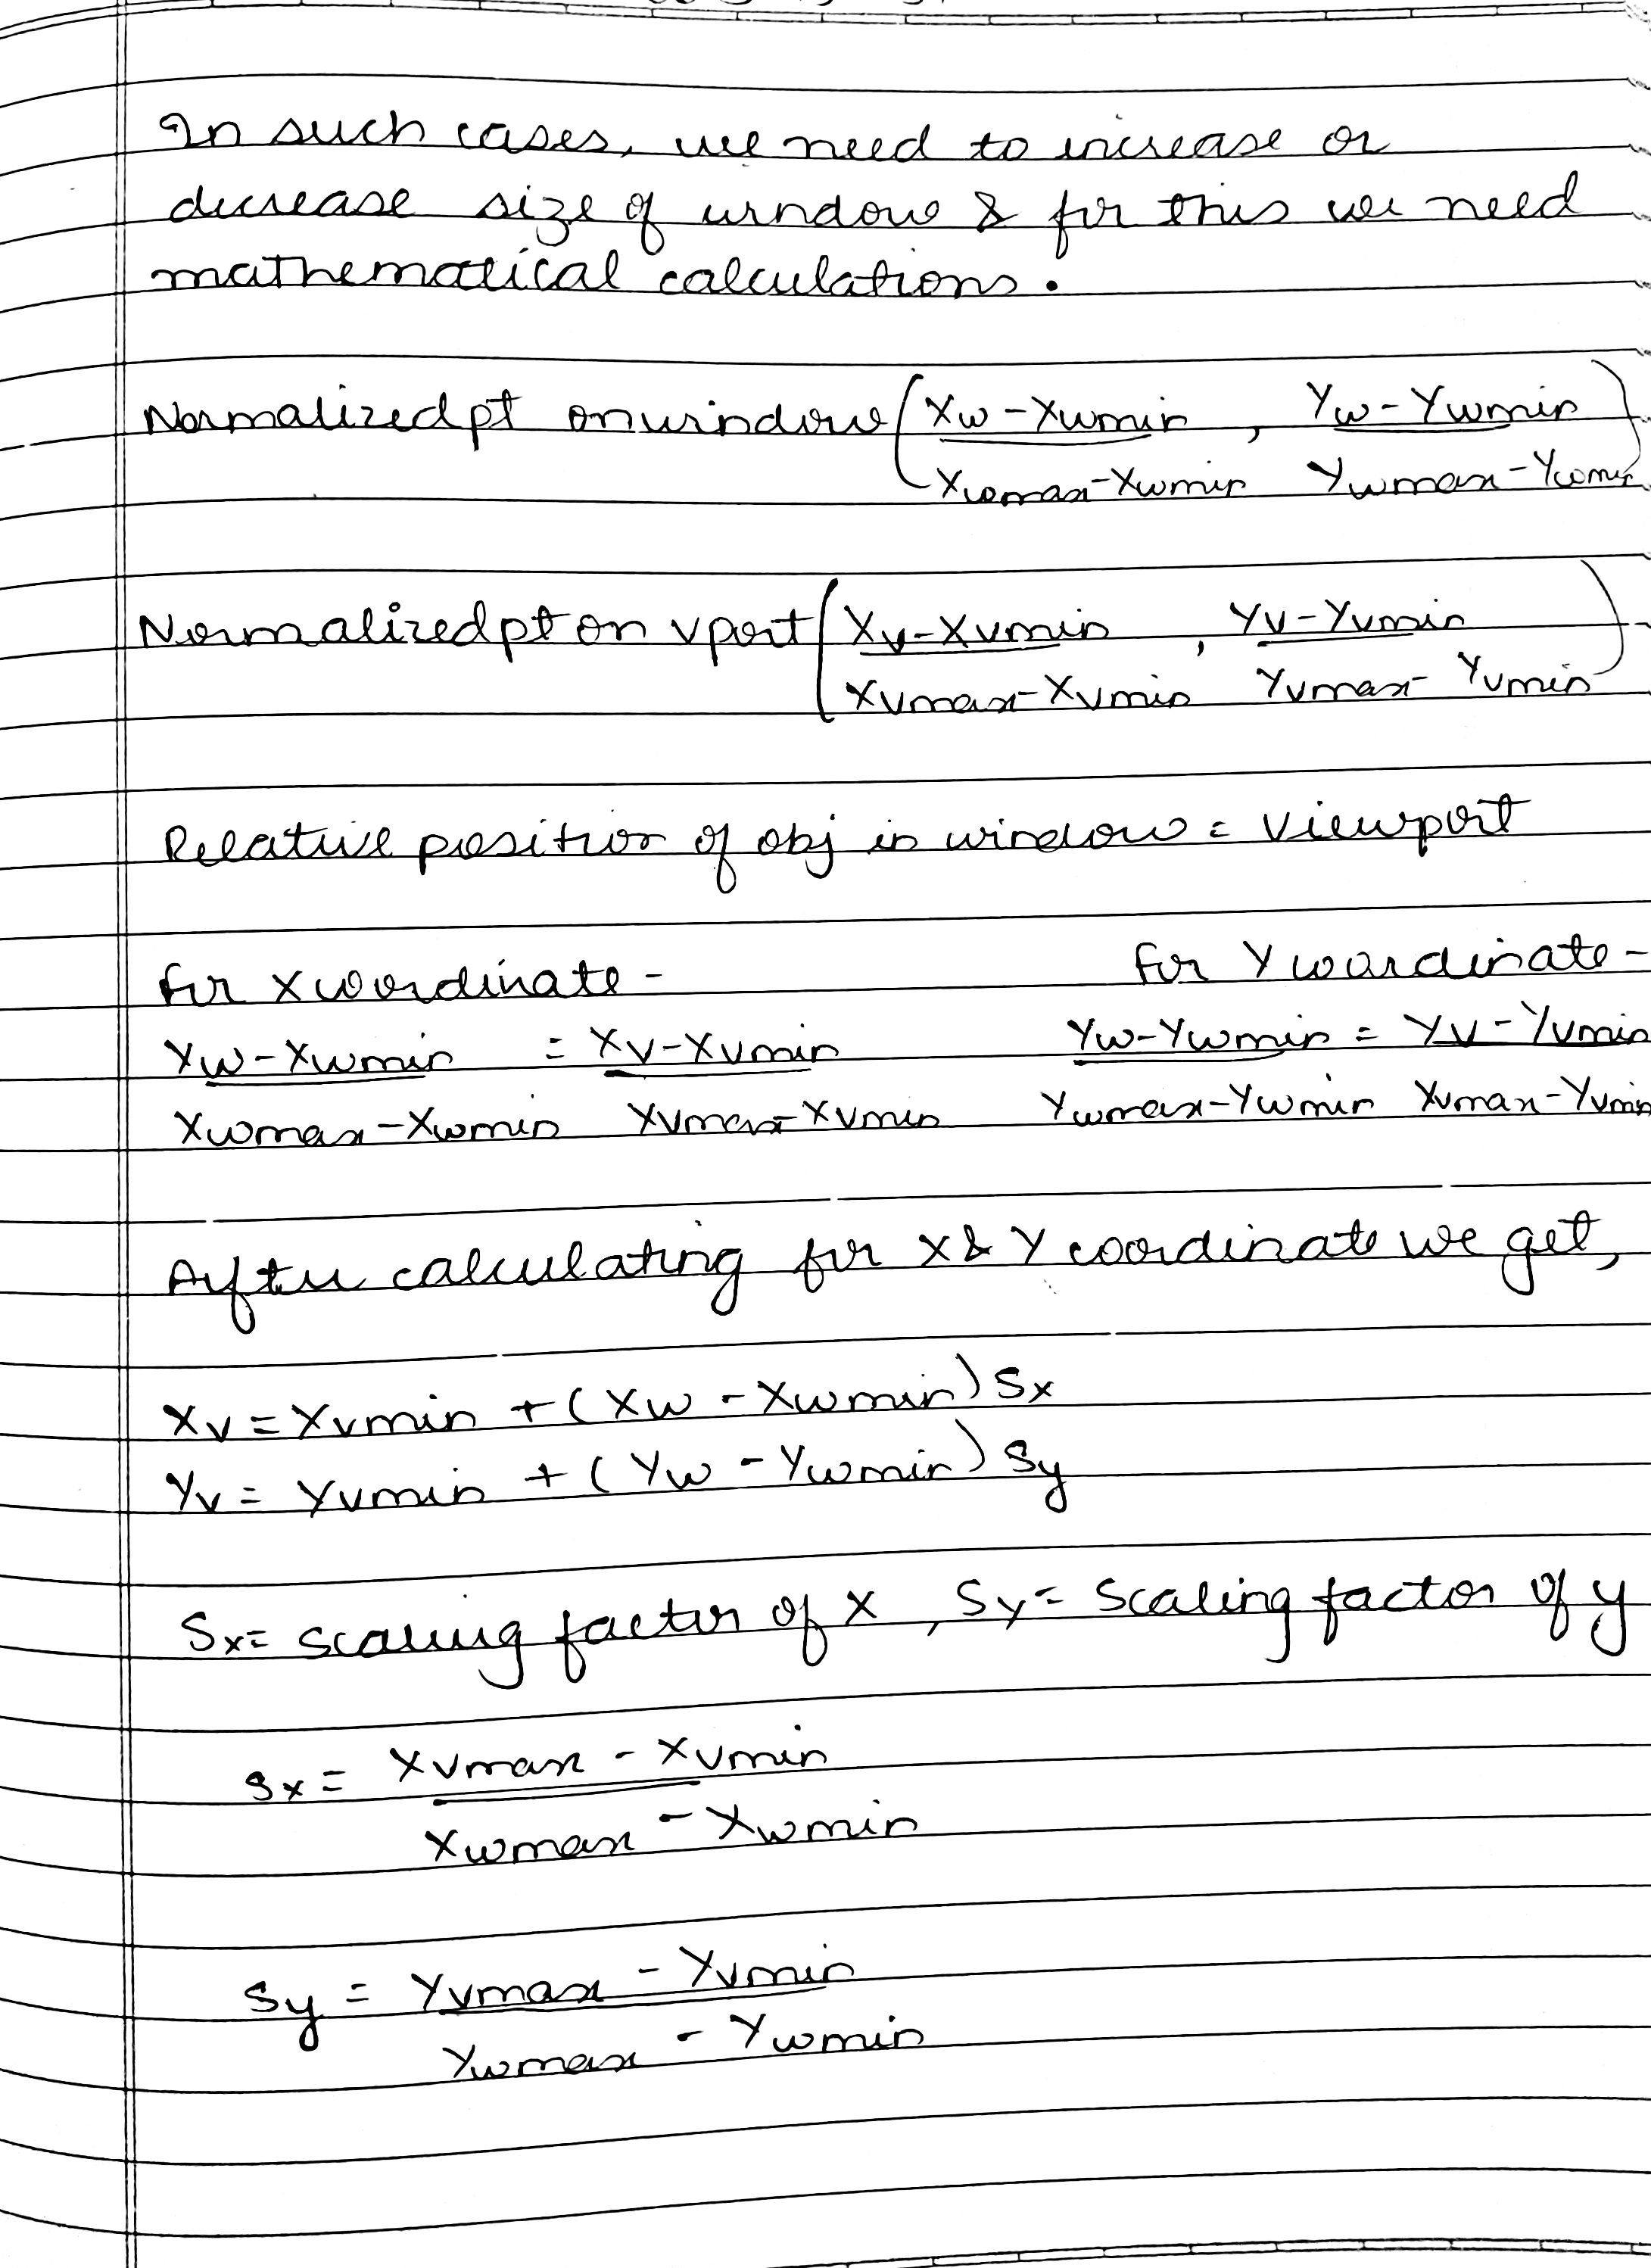 In such cases, we need to increase or
decrease size of window & for this we need
mathematical calculations.
Normalized pt on window (Xw - Xwmin / Xwmax - Xwmin , Yw - Ywmin / Ywmax - Ywmin)
Normalized pt on vport (Xv - Xvmin / Xvmax - Xvmin , Yv - Yvmin / Yvmax - Yvmin)
Relative position of obj in window = viewport
for X coordinate -
Xw - Xwmin / Xwmax - Xwmin = Xv - Xvmin / Xvmax - Xvmin
for Y coordinate -
Yw - Ywmin / Ywmax - Ywmin = Yv - Yvmin / Xvmax - Yvmin
After calculating for X & Y coordinate we get,
Xv = Xvmin + (Xw - Xwmin) Sx
Yv = Yvmin + (Yw - Ywmin) Sy
Sx = scaling factor of X , Sy = Scaling factor of y
Sx = Xvmax - Xvmin / Xwmax - Xwmin
Sy = Yvmax - Yvmin / Ywmax - Ywmin